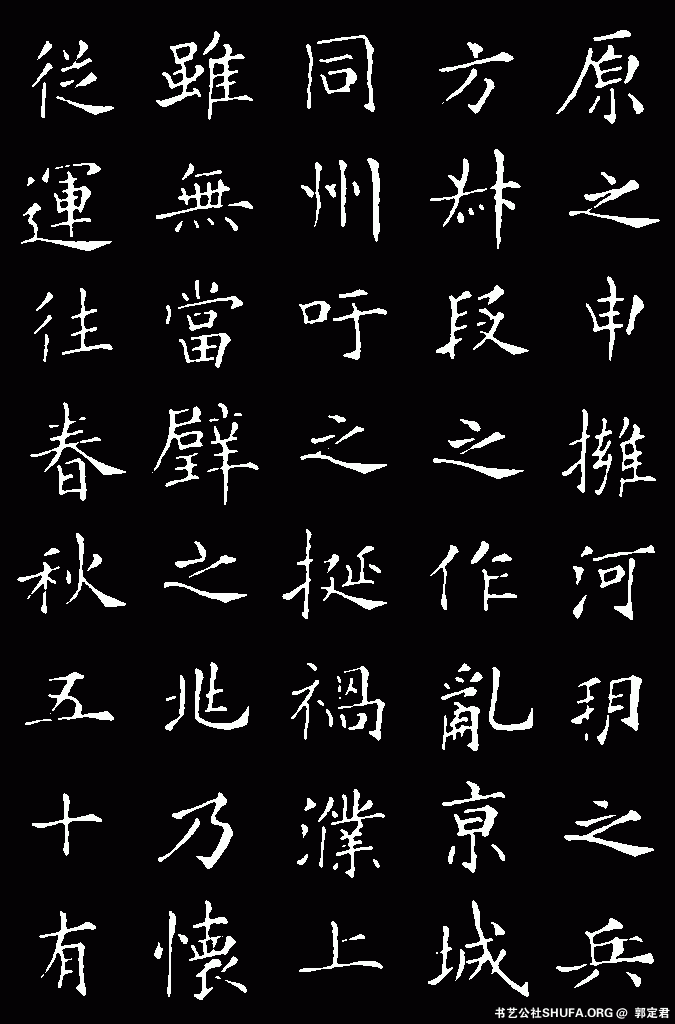 原之申擁河朔之兵
方叔段之作亂京城
同州吁之挺禍濮上
雖無當璧之兆乃懷
従運往春秋五十有
书艺公社SHUFA.ORG @ 郭定君